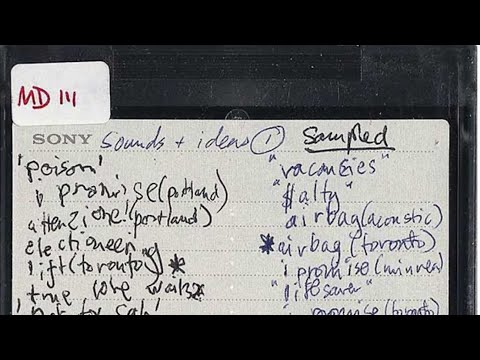 MD 111
SONY sounds + ideas ① sampled
'poison'
i promise (portland)
attenzione! (portland)
electioneering
lift (toronto) *
true love waits
"vacancies"
"$alty"
airbag (acoustic)
* airbag (toronto)
i promise
"lifesaver"
promise (toronto)